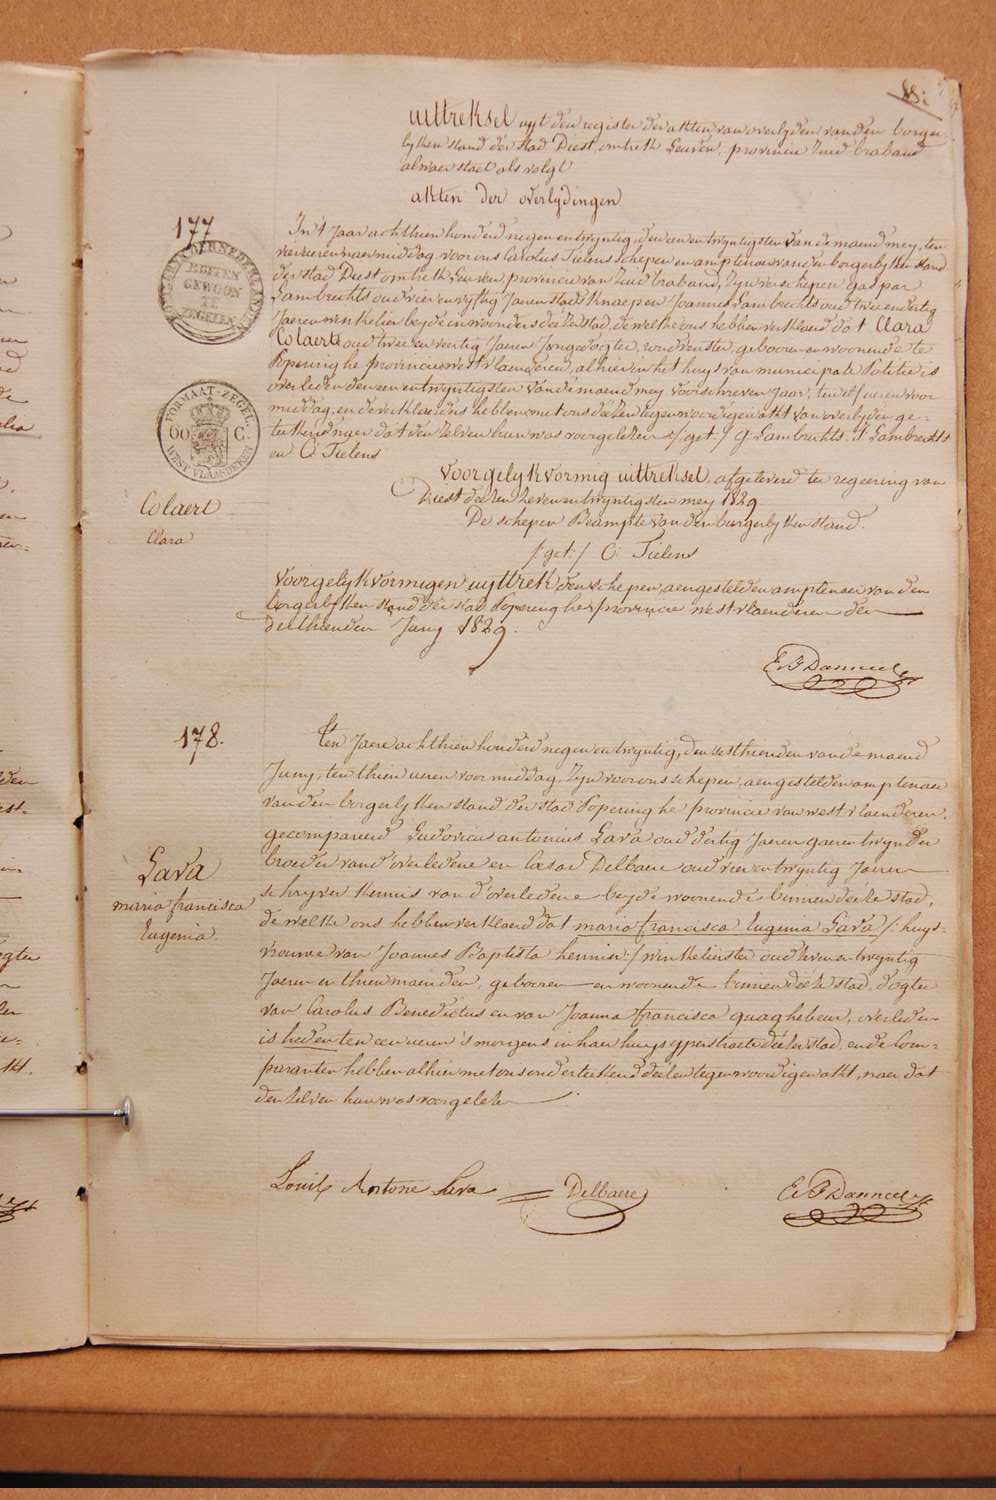 88:
uittreksel uyt den register der akten van overlyden van den borger
lyken stand der stad Diest, omtrek Leuven, provincie Zuid-braband
alwaer staet als volgt
akten der overlydingen
177
In 't Jaar achthien honderd negen en twyntig, den een en twyntigsten van de maend mey, ten
vier uren naer middag, voor ons Carolus Tielens schepen en amptenaer van den borgerlyken stand
der stad Diest omtrek Leuven, provincie van Zuid braband, zyn verschepen gaspar
Lambrechts oud vier en vyftig Jaeren stads knaep en Joannes Lambrechts oud twee en dertig
Jaeren winkelier beyde inwoonders deezer stad, de welke ons hebben verklaerd dat Clara
Colaert oud twee en veertig Jaeren Jongedogter, geboren en woonende te
Poperinghe provincie westvlaenderen, alhier in het huys van municipale Politie is
overleden den een en twyntigsten van de maend mey voorschreven Jaar, ten elf uren voor
middag, en de verklaerders hebben met ons deezen tegenwoordigen akt van overlyden ge-
teekend naer dat den zelven hun was voorgelezen /:get:/ G: Lambrechts. J Lambrechts
en C: Tielens
voorgelykvormig uittreksel, afgeleverd ter regeering van
Diest deezen zeven en twyntigsten mey 1829
De schepen Beampte van den burgerlyken stand.
/:get:/ C: Tielens
voorgelykvormigen uyttrek den schepen, aengestelden amptenaer van den
borgerlyken stand der stad Poperinghe, provincie westvlaenderen den
derthienden Juny 1829.
E. F Danneel
BUITENGEWOON
ZEGELEN
GEWOON
TE
ZEGELEN
FORMAAT-ZEGEL
60 C.
WEST VLAANDEREN
Colaert
Clara
178.
Ten Jaere achthien honderd negen en twyntig, den zesthienden van de maend
Juny, ten thien uren voor middag, zyn voor ons schepen, aengestelden amptenaer
van den borgerlyken stand der stad Poperinghe provincie van westvlaenderen,
gecompareerd Ludovicus antonius Lava oud dertig Jaeren gaerentwynder
broeder van d'overledene en Cæsar Delbaere oud vier en twyntig Jaeren
schryver kennis van d'overledene beyde woonende binnen deeze stad,
de welke ons hebben verklaerd dat maria francisca Eugenia Lava /: huys-
vrouwe van Joannes Baptista hennin :/ winkelierster oud zeven en twyntig
Jaeren en thien maenden, geboren en woonende binnen deeze stad, dogter
van Carolus Benedictus en van Joanna francisca quaghebeur, overleden
is heden ten een uren 's morgens in haer huys ypperstraete deezer stad, en de Com-
paranten hebben alhier met ons onderteekend deezen tegenwoordigen akt, naer dat
den zelven hun was voorgelezen.
Lava
maria francisca
Eugenia.
Louis Antone Lava
Delbaere
E. F Danneel